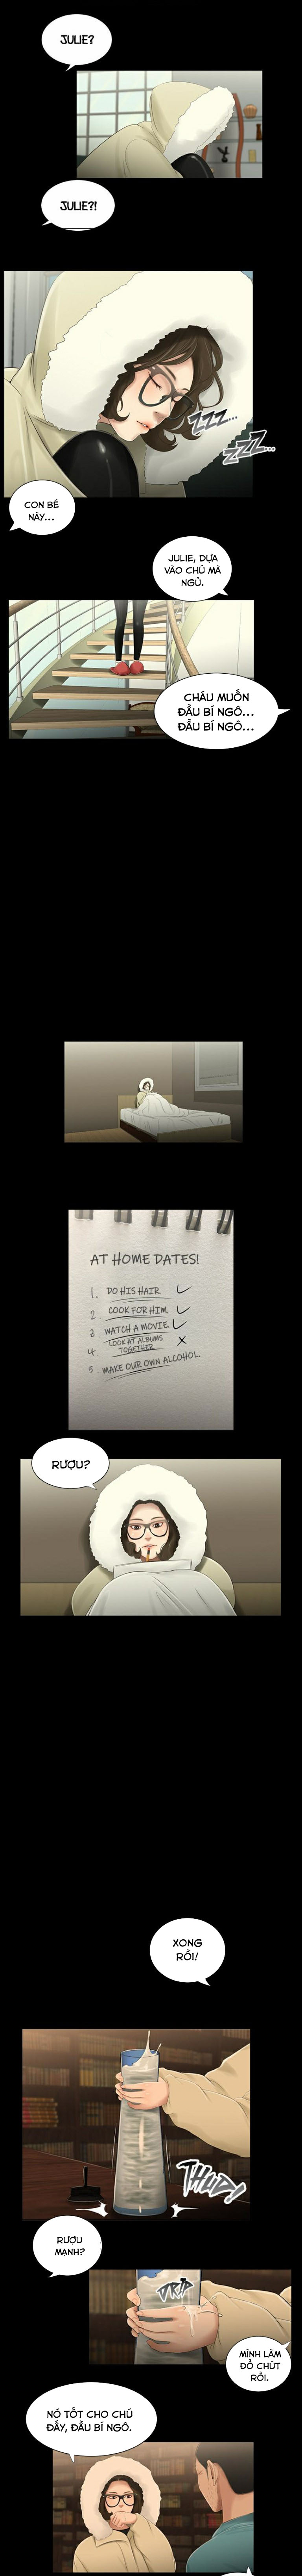 JULIE?
JULIE?!
ZZZ...
ZZZ...
CON BÉ
NÀY...
JULIE, DỰA
VÀO CHÚ MÀ
NGỦ.
CHÁU MUỐN
ĐẦU BÍ NGÔ...
ĐẦU BÍ NGÔ...
AT HOME DATES!
1. DO HIS HAIR. ✓
2 COOK FOR HIM. ✓
3 WATCH A MOVIE. ✓
4 LOOK AT ALBUMS
TOGETHER X
5. MAKE OUR OWN ALCOHOL.
RƯỢU?
XONG
RỒI!
THUD!
RƯỢU
MẠNH?
DRIP
MÌNH LÀM
ĐỔ CHÚT
RỒI.
NÓ TỐT CHO CHÚ
ĐẤY, ĐẦU BÍ NGÔ.